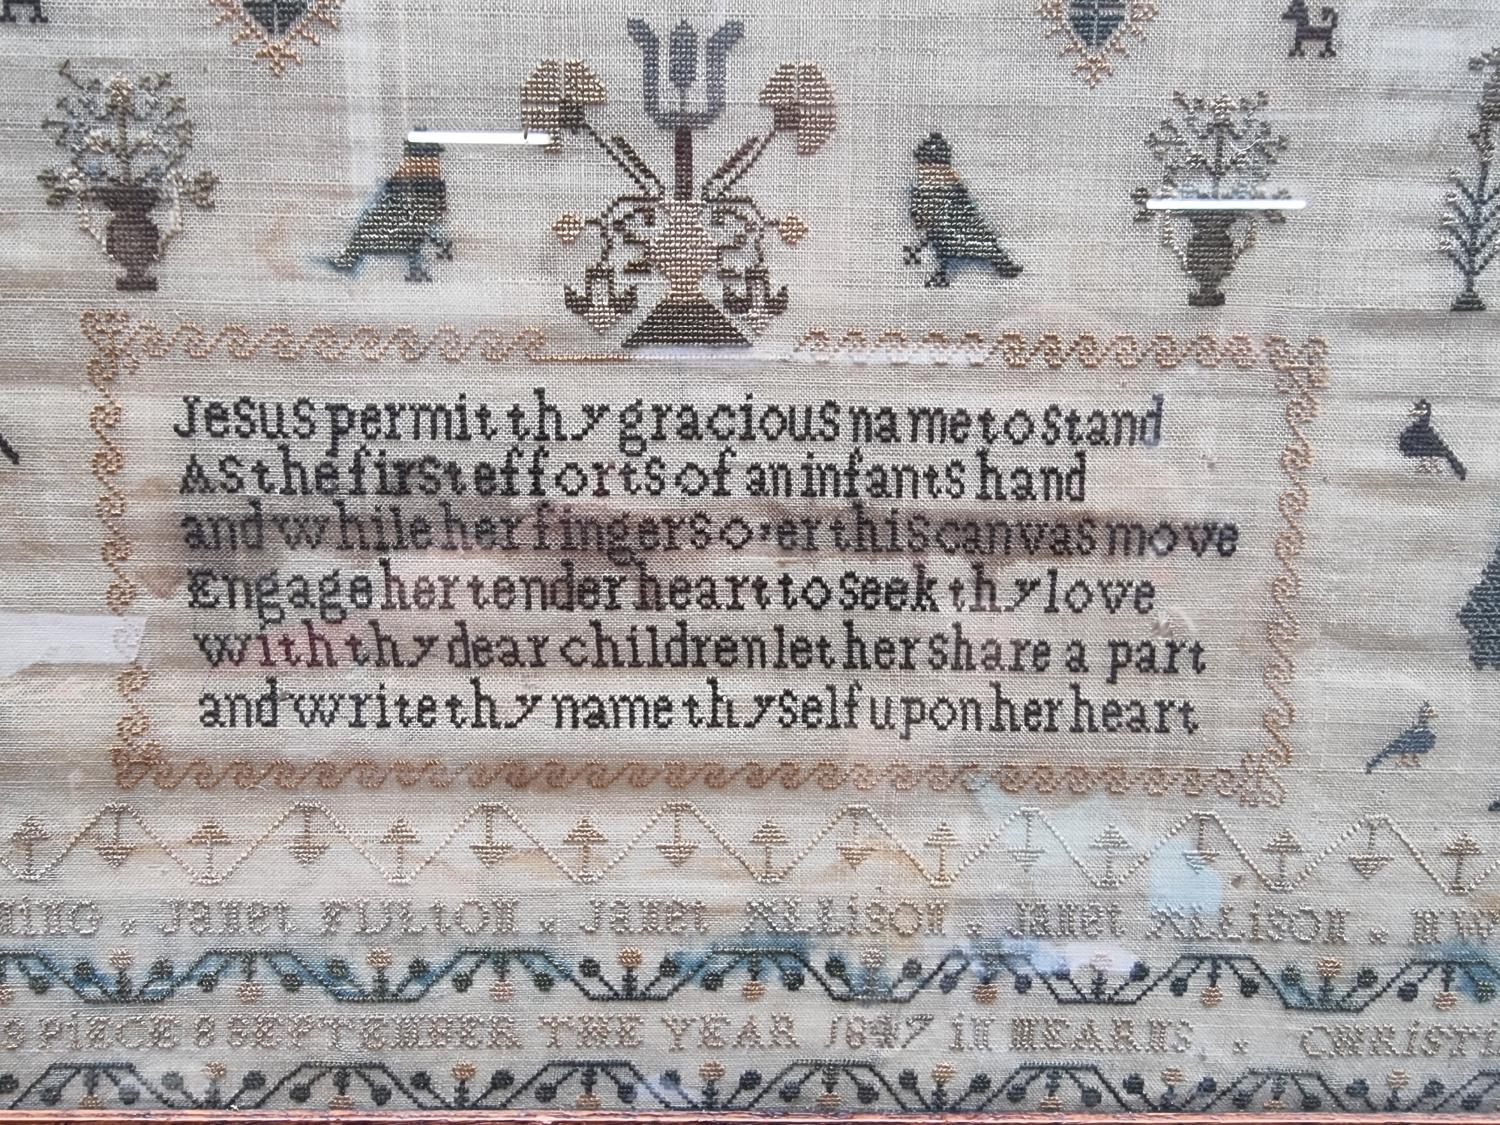 Jesus permit thy gracious name to stand
As the first efforts of an infants hand
and while her fingers o'er this canvas move
Engage her tender heart to seek thy love
with thy dear children let her share a part
and write thy name thyself upon her heart
Janet FULTON . Janet ALLISON . Janet ALLISON .
PIECE 8 SEPTEMBER THE YEAR 1847 in MEARNS .